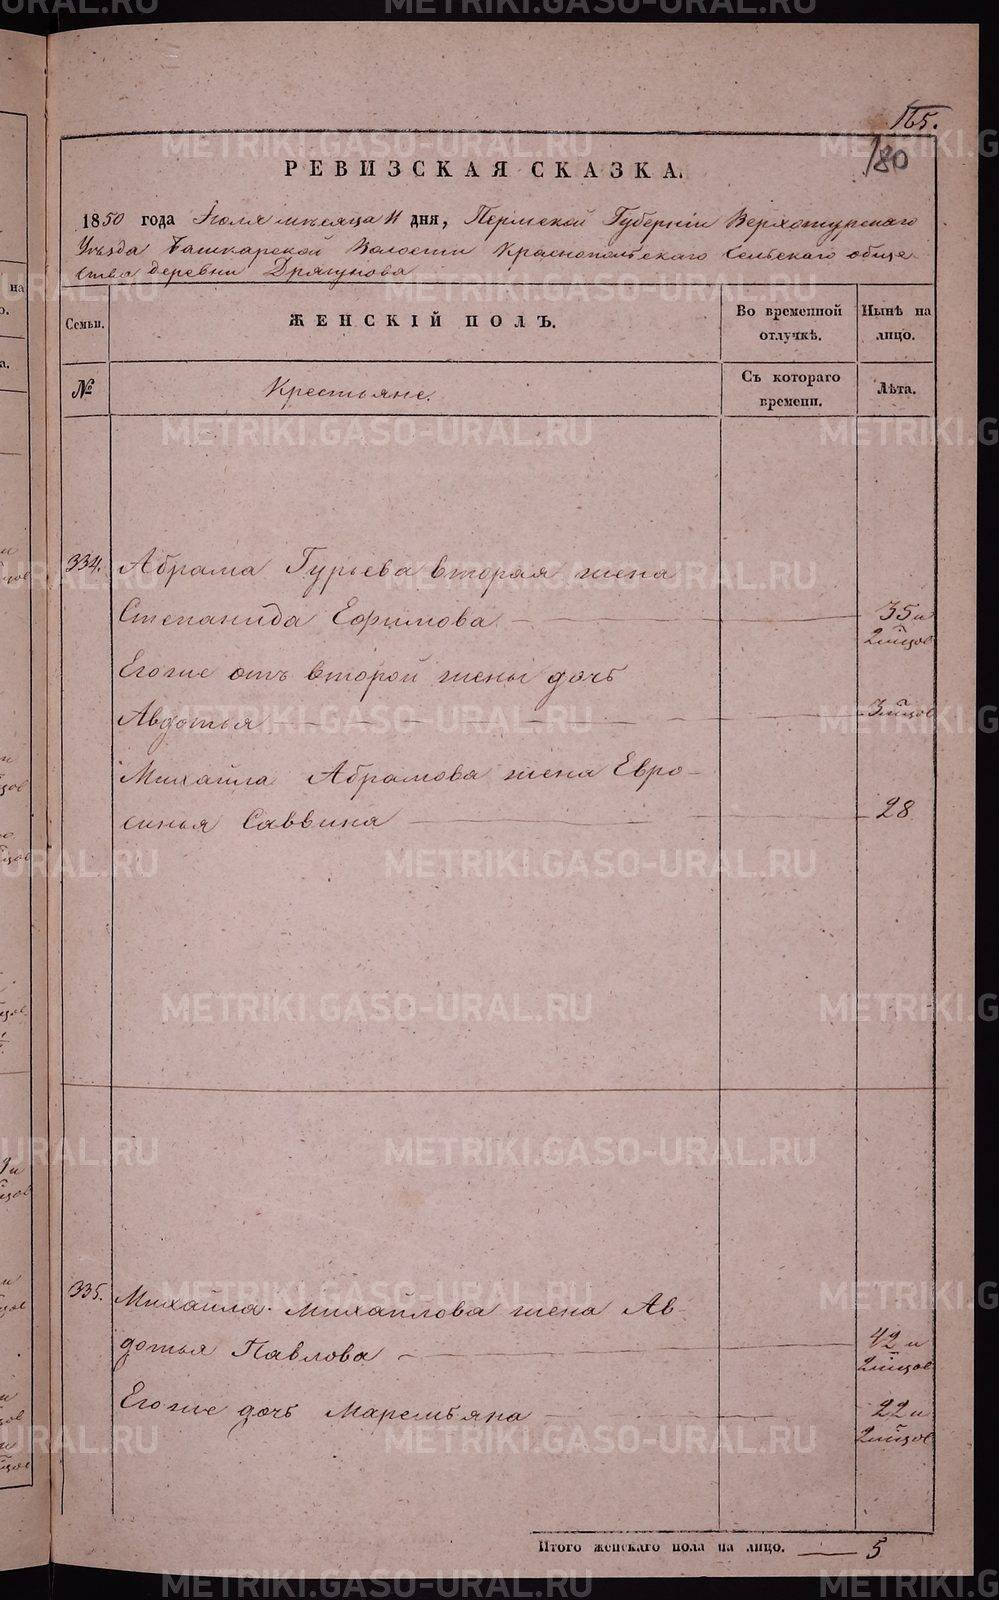 165.
180
РЕВИЗСКАЯ СКАЗКА.
1850 года Іюля мѣсяца 11 дня, Пермской Губерніи Верхотурского
Уѣзда Башкарской Волости Краснопольского Сельскаго обще
ства деревни Дрягунова
Семьи.
ЖЕНСКІЙ ПОЛЪ.
Во временной отлучкѣ.
Нынѣ на лицо.
№
Крестьяне.
Съ котораго времени.
Лѣта.
334. Абрама Гурьева вторая жена
Степанида Ефимова 35 и 2 м-цов
Егоже отъ второй жены дочь
Авдотья 3 м-цов
Михайла Абрамова жена Евро-
синья Саввина 28
335. Михайла Михайлова жена Ав-
дотья Павлова 42 и 2 м-цов
Егоже дочь Маремьяна 22 и 2 м-цов
Итого женскаго пола на лицо. 5
METRIKI.GASO-URAL.RU